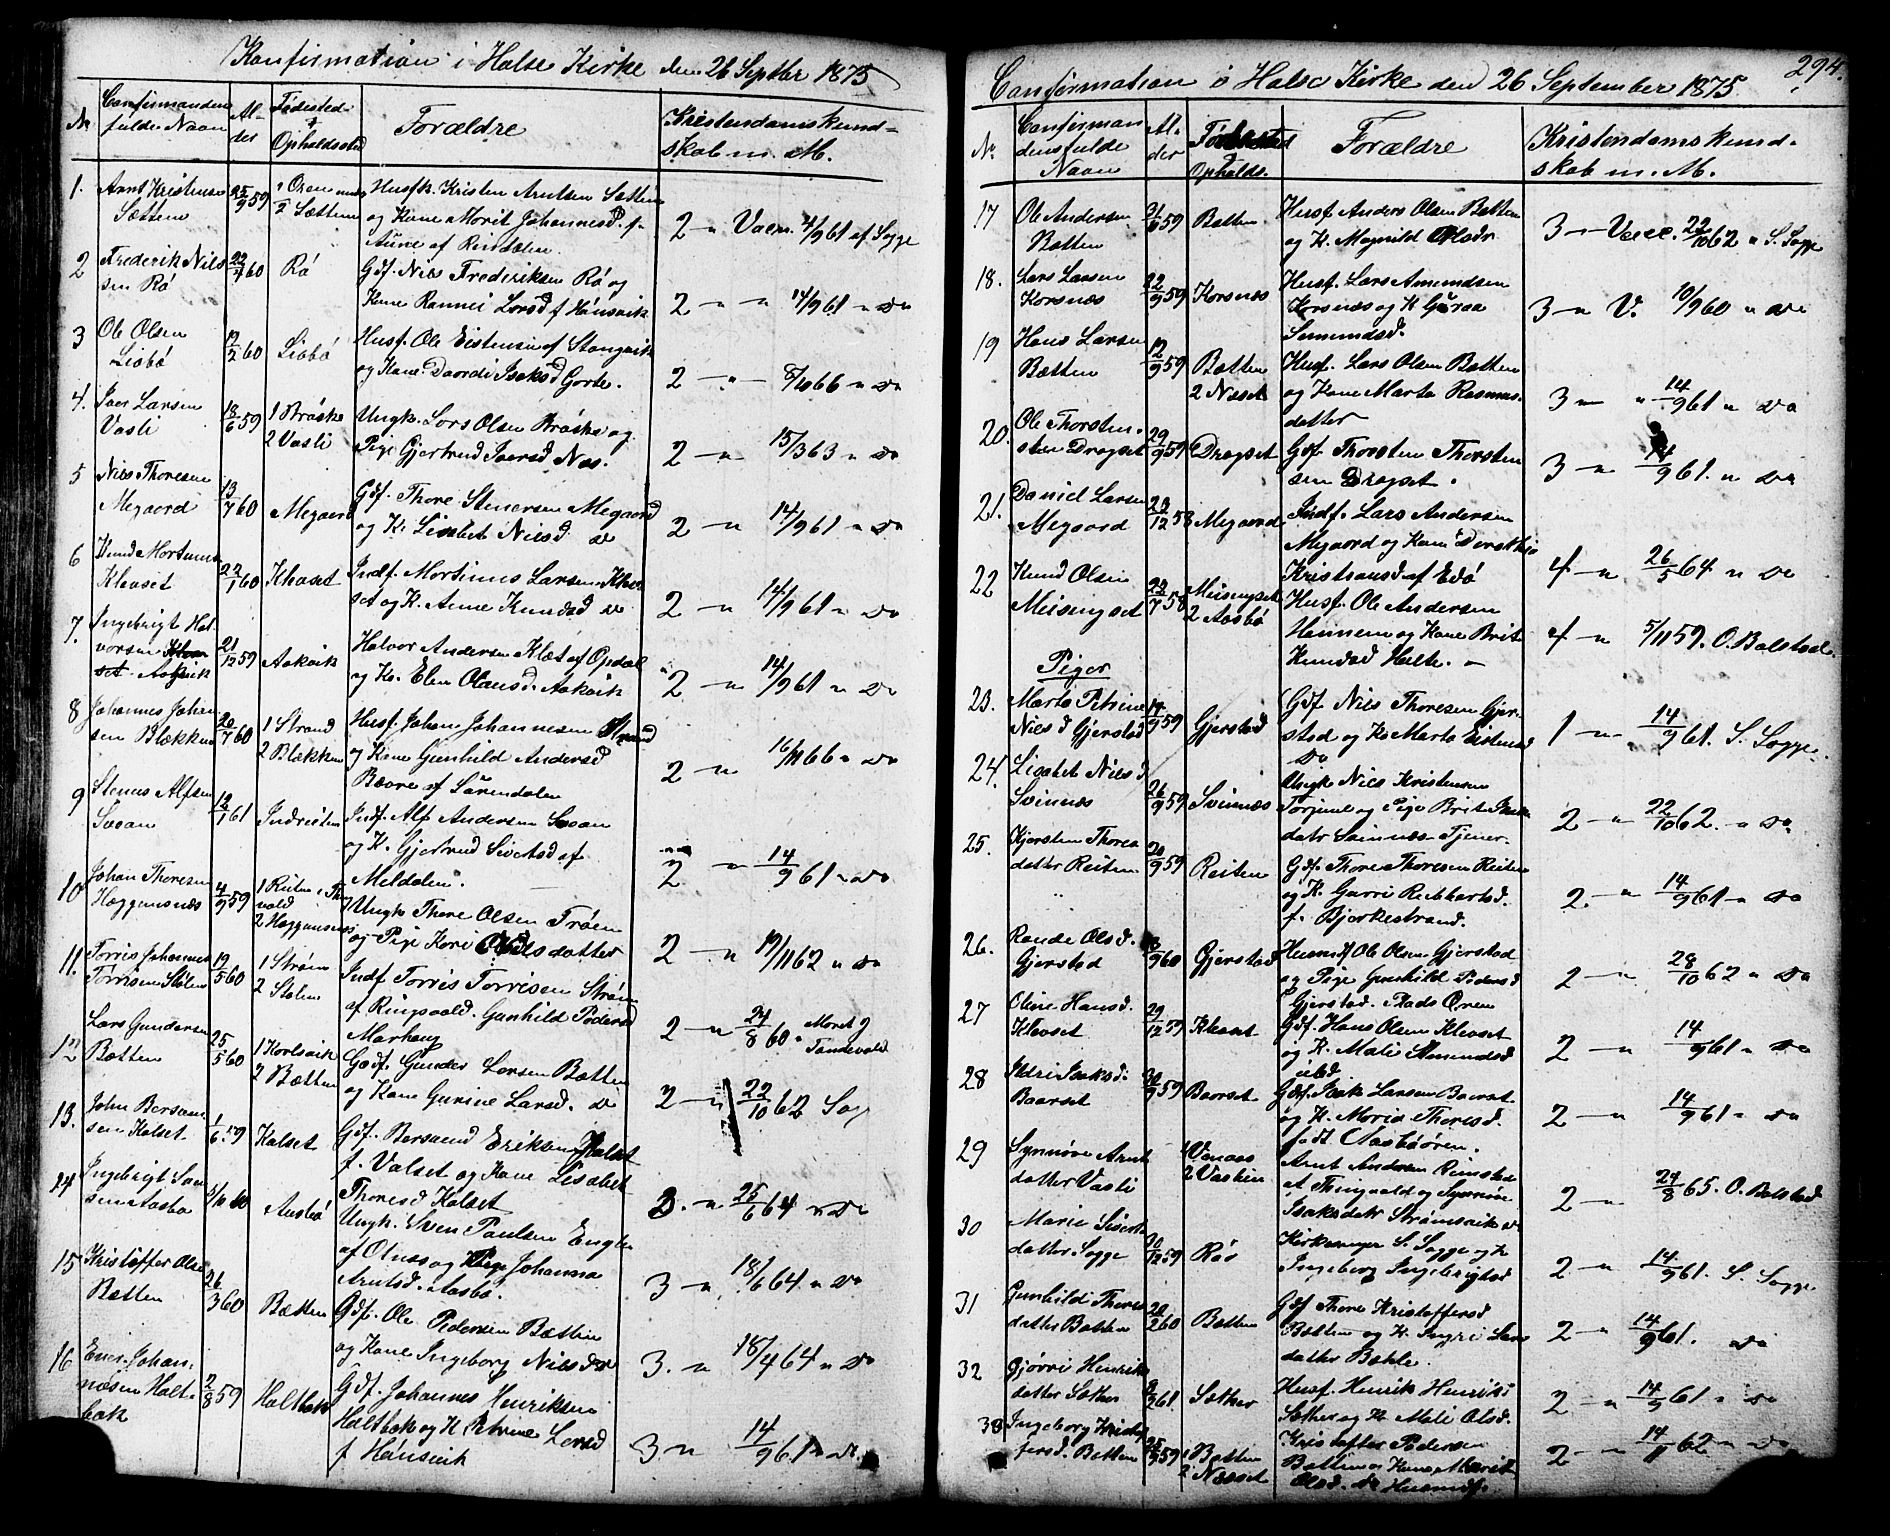 Konfirmation i Halse Kirke den 26 Septbr 1875
No
Confirmandens
fulde Navn
Al-
der
Fødested
+
Opholdssted
Forældre
Kristendomskund-
skab m. M.
1.
Arnt Kristensen
Sættem
25/9 59
1 Oren
2 Sættem
Husfk. Kristen Arntsen Sættem
og Kone Marit Johannesd. f.
Aune af Rindalen
2 — " Vacc. 4/9 61 af Sogge
2
Frederik Nils
sen Rø
22/4 60
Rø
Gdf. Nils Frederiksen Rø og
Kone Rannei Larsd f Hønsvik
2 — " — " 14/9 61 " Do
3
Ole Olsen
Liabø
12/2 60
Liabø
Husf. Ole Eistensen af Stangvik
og Kone Daardi Isaksd Gorte.
2 — " — 8/10 66 " Do
4.
Iver Larsen
Vasli
18/6 59
1 Bræske
2 Vasli
Ungk. Lars Olsen Bræske og
Pige Gjertrud Iversd Næs.
2 — " 15/3 63 " Do
5
Nils Thoresen
Megaard
13/7 60
Megaard
Gdf. Thore Stenersen Megaard
og K. Lisabet Nilsd Do
2 — " 14/9 61 " Do
6
Knud Mortinus
Klevset
22/1 60
Klevset
Indf. Mortinus Larsen Klev
set og K. Anne Knudsd Do
2 — " 14/9 61 " Do
7.
Ingebrigt Hal
vorsen
Aakvik
21/12 59
Aakvik
Halvor Andersen Klæt af Opdal
og K. Elen Olausd. Aakvik
2 — " 14/9 61 " Do
8
Johannes Johan
sen Blekken
20/7 60
1 Strand
2 Blækken
Husf. Johan Johannesen Strand
og Kone Gunhild Andersd
Bævre af Surendalen
2 — " 16/11 66 " Do
9
Stenus Alfsen
Svean
12/1 61
Indreiten
Indf. Alf Andersen Svean
og K. Gjertrud Sivertsd af
Meldalen.
2 — " 14/9 61 " Do
10
Johan Thoresen
Hæggemsnæs
4/9 59
Ungk Thore Olsen Trøen
og Pige Kari Nilsdatter
2 — " 17/11 62 " Do
11.
Torris Johannes
Torrisen Stolen
19/5 60
1 Strøm
2 Stolen
Indf Torris Torrisen Strøm
af Ringvold. Gunhild Pedersd
Marhaug
2 — " 24/8 60 "
12
Lars Gundersen
Bætten
25/5 60
1 Korlsvik
2 Bætten
Gdf. Gunder Larsen Bætten
og Kone Gurine Larsd. Do
2 — " 22/10 62
13.
John Bersven
sen Halset
1/6 59
Halset
Gdf. Bersvend Eriksen Halset
f. Valset og Kone Lisabet
Thoresd Halset
3. — " 25/6 64 " Do
Ingebrigt
sen Aasbø
Aasbø
Ungk. Sven Paulsen Engen
af Otnes og Pige Johanna
Arntsd. Aasbø.
3 — " 18/6 64 " Do
15
Kristoffer Olsen
Bætten
26/3 60
Bætten
Gdf. Ole Pedersen Bætten
og Kone Ingeborg Nilsd Do
3. — " 18/4 64 " Do
16
Johan,
nesen Halt-
bak
2/8 59
Haltbak
Gdf. Johannes Henriksen
Haltbak og K Petrine Larsd
f Hønsvik
3 — " 14/9 61 " Do.
294.
Confirmation i Halse Kirke den 26 September 1875
No
Confirman
dens fulde
Navn
Al-
der
Fødested
Opholds.
Forældre
Kristendomskund-
skab m. M.
17
Ole Andersen
Bætten
59
Bætten
Husf. Anders Olsen Bætten
og K. Magnild Olsdr
3 — " Vacc. 22/10 62 " S. Sogge
18.
Lars Larsen
Korsnæs
22/9 59
Korsnæs
Husf. Lars Amundsen
Korsnæs og K Guraa
3 — " V. 10/9 60 " Do
19
Hans Larsen
Bætten
12/9 59
Bætten
2 Næset
Husf. Lars Olsen Bætten
og Kone Marta Rasmus-
datter
3 — " 14/9 61 " Do
20.
Ole Thorsten-
sen Dragset
29/9 59
Dragset
Gdf. Thorsten Thorsten
sen Dragset.
3 — " 14/9 61. " Do
21.
Daniel Larsen
Megaard
23/12 58
Megaard
Indf. Lars Andersen
Megaard og Kone Dorthea
Kristiansd af Edø
4 — " 26/5 64 " Do
22
Knud Olsen
Meisingset
23/7 58
Meisingset
2 Aasbø
Husf. Ole Andersen
Hennem og Kone Brit
Knudsd Halte. —
4 — " 5/11 59. O. Bolstad.
Piger
23.
Marta Petrine
Nilsd Gjerstad
14/9 59
Gjerstad
Gdf. Nils Thoresen Gjer-
stad og K. Marta Eistensd
Do
1 — " 14/9 61. S. Sogge.
24.
Lisabet Nilsd
Svinnæs
26/9 59
Svinnæs
Ungk Nils Kristensen
Torjul og Pige Brit
datr Svinnæs Tjener.
2 — " 22/10 62. — " Do
25.
Kjersten Thores
datter Reiten
20/9 59
Reiten
Gdf. Thore Thoresen Reiten
og K. Gurri Rickhartsd.
f. Bjerkestrand.
2. — " 14/9 61 " Do
26.
Rande Olsd.
Gjerstad
60
Gjerstad
Husmf Ole Olsen Gjerstad
og Pige Gunhild Pedersd
Gjerstad. Plads Oren
2 — " 28/10 62 " Do
27
Oline Hansd.
Klevset
29/12 59
Klevset
Gdf. Hans Olsen Klevset
og K. Mali Amundsd
2 — " 14/9 61 " Do
28
Sidri Isaksd.
Baarset
30/9 59
Baarset
Gdf. Isak Larsen Baarset
og K. Maria Thoresd.
født Aasbøøren.
2 — " 14/9 61 " Do
29
Synnøve Arnt
datter Vasli
2 Vaslien
Arnt Andersen Rimstad
af Thingvold og Synnøve
Isaksdatr Strømsvik Do
2 — " 24/8 65. O. Bolstad
30
Marie Sivert
datter Sogge
30/12 59
Røv
Kirkesanger S. Sogge og K
Ingeborg Ingebrigtsd
2 — " 14/9 61. S. Sogge
31
Gunhild Thores
datter Bætten
20/2 60
Bætten
Gdf Thore Kristoffersd
Bætten og K. Ingri Lars
datter Bæhle.
2 — " 14/9 61. Do
32
Gjørri Henriks
datter Sæther
61.
Sæther
Husf. Henrik Henriks
Sæther og K. Mali Olsd.
2 — " 14/9 61 " Do
33
Ingeborg Kristof
fersd. Bætten
25/9 59
1 Bætten
2 Næsset
Kristoffer Pedersen
Bætten og Kone Marit
Olsd. Do Husmf.
2 — " 14/11 62 — " Do